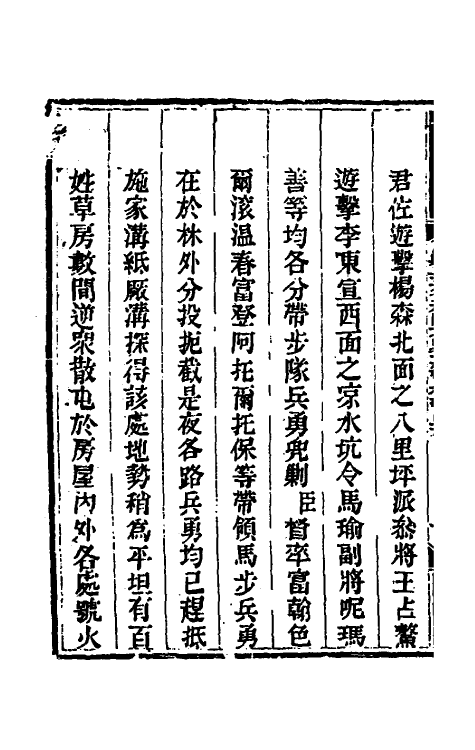 君佐遊擊楊森北面之八里坪派叅將王占鰲
遊擊李東宣西面之凉水坑令馬瑜副將呢瑪
善等均各分帶步隊兵勇兜剿臣督率富翰色
爾滾温春富登阿托爾托保等帶領馬步兵勇
在於林外分投扼截是夜各路兵勇均已趕抵
施家溝紙厰溝探得該處地勢稍爲平坦有百
姓草房數間逆衆散屯於房屋內外各處號火